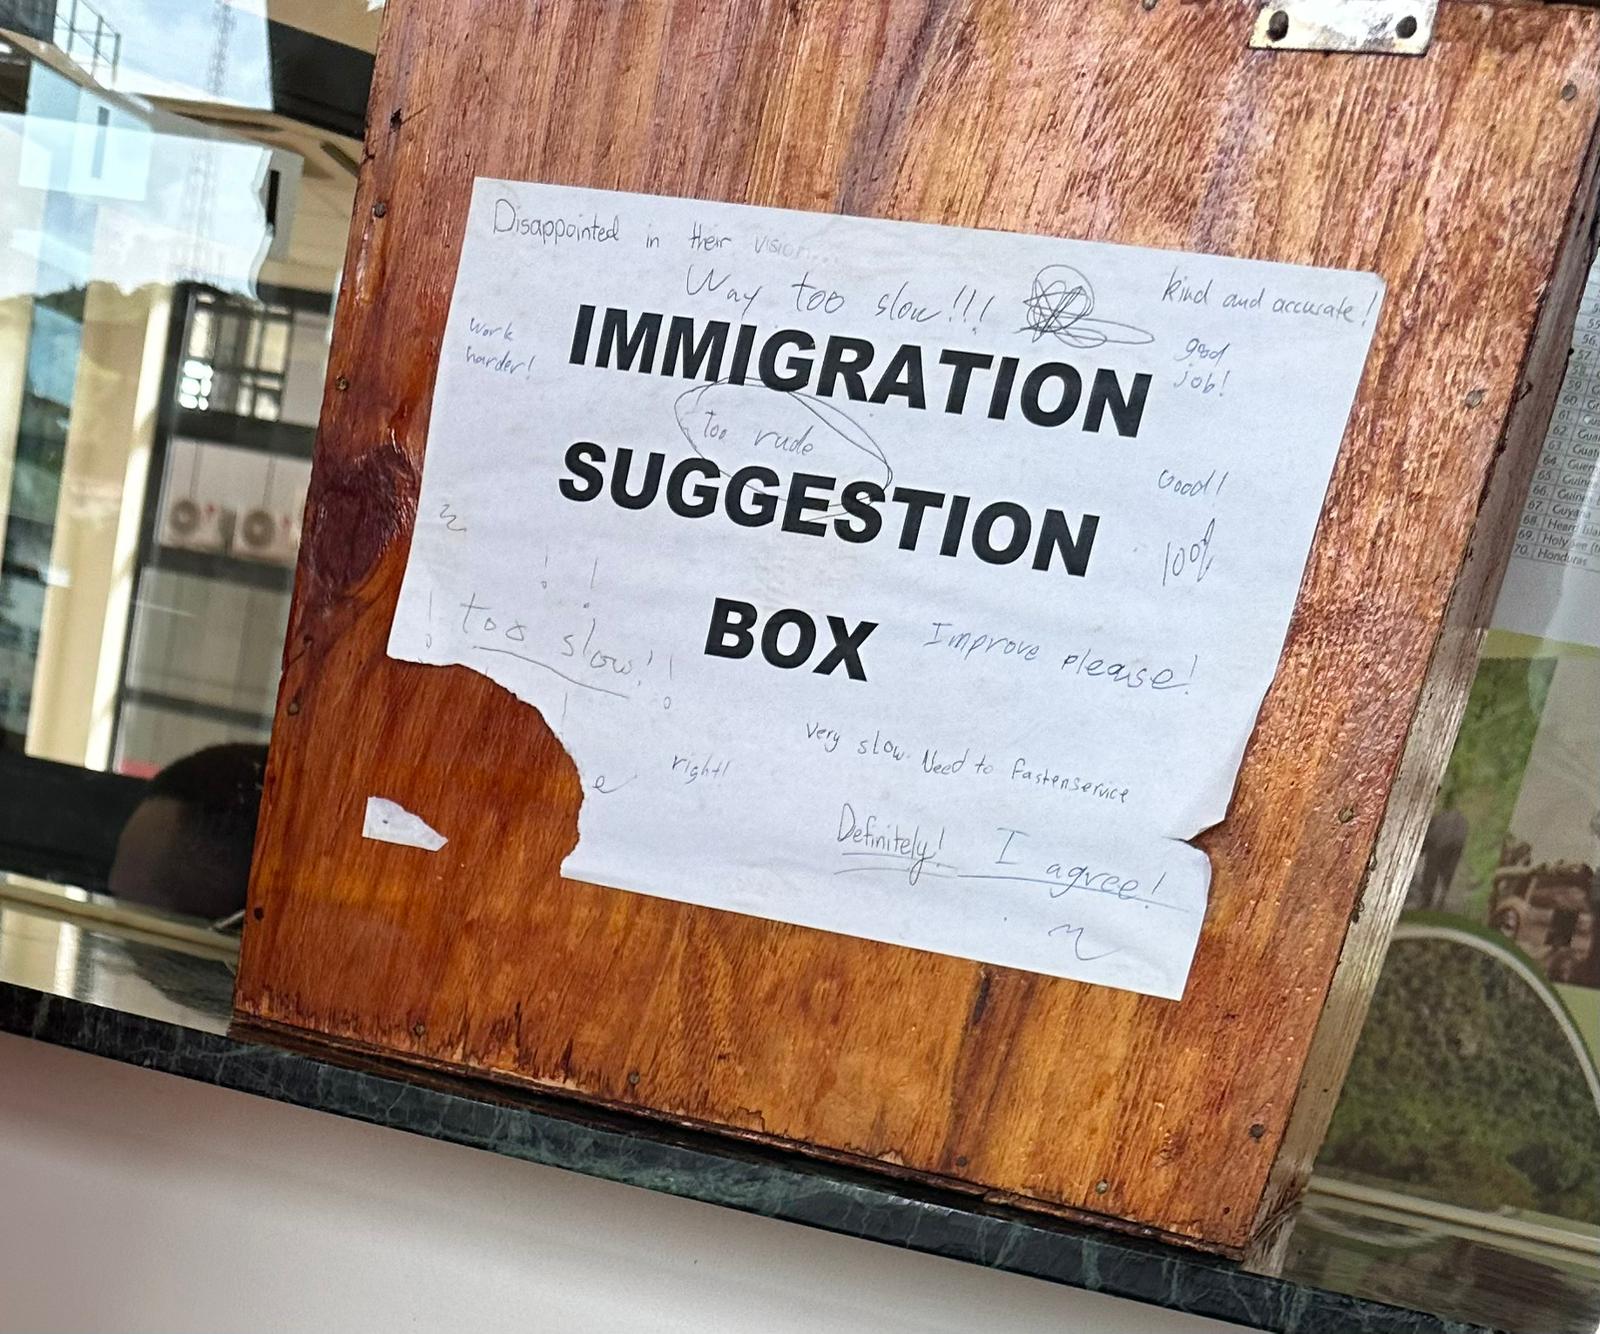 Disappointed in their vision...
Way too slow!!!
kind and accurate!
work
harder!
good
job!
IMMIGRATION
too rude
SUGGESTION
Good!
100%
! !
! too slow!!
BOX
Improve please!
right!
Very slow. Need to fasten service
Definitely! I agree!
56.
57.
58.
59.
60.
61.
62.
63.
64.
65.
66.
67. Guyana
68. Heard
69. Holy
70. Honduras